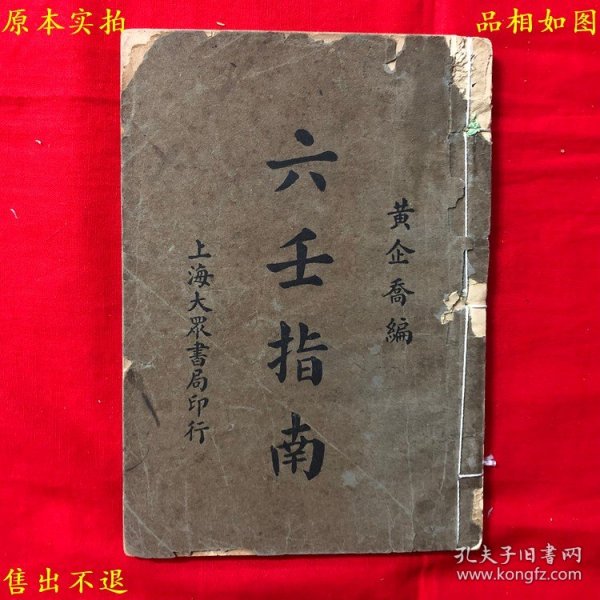 原本实拍
品相如图
黄企喬編
六壬指南
上海大眾書局印行
售出不退
孔夫子旧书网
www.kongfz.com